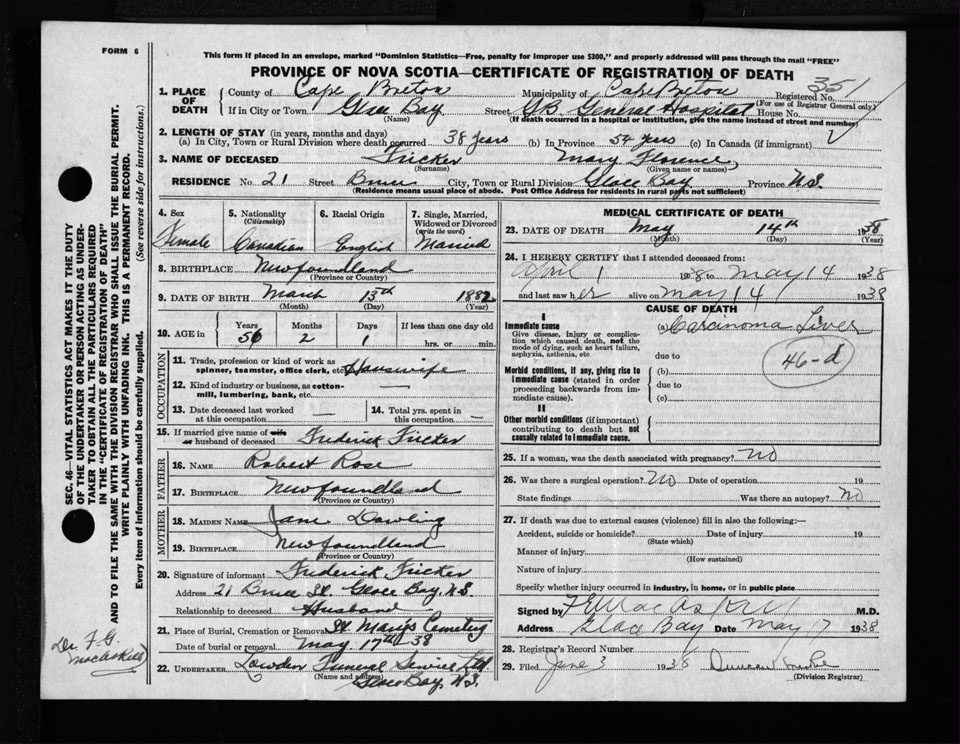 FORM 6
This form if placed in an envelope, marked "Dominion Statistics—Free, penalty for improper use $300," and properly addressed will pass through the mail "FREE"
PROVINCE OF NOVA SCOTIA—CERTIFICATE OF REGISTRATION OF DEATH
351
1. PLACE OF DEATH County of Cape Breton Municipality of Cape Breton Registered No.
(For use of Registrar General only)
If in City or Town Glace Bay Street G.B. General Hospital House No.
(Name) (If death occurred in a hospital or institution, give the name instead of street and number)
2. LENGTH OF STAY (in years, months and days)
(a) In City, Town or Rural Division where death occurred 38 years (b) In Province 54 years (c) In Canada (if immigrant)
3. NAME OF DECEASED Fricker Mary Florence
(Surname) (Given name or names)
RESIDENCE No. 21 Street Bruce City, Town or Rural Division Glace Bay Province N.S.
(Residence means usual place of abode. Post Office Address for residents in rural parts not sufficient)
4. Sex Female
5. Nationality (Citizenship) Canadian
6. Racial Origin English
7. Single, Married, Widowed or Divorced (write the word) Married
8. BIRTHPLACE Newfoundland
(Province or Country)
9. DATE OF BIRTH March 13th 1882
(Month) (Day) (Year)
10. AGE in Years Months Days If less than one day
56 2 1 hrs. or min.
OCCUPATION
11. Trade, profession or kind of work as spinner, teamster, office clerk, etc. Housewife
12. Kind of industry or business, as cotton-mill, lumbering, bank, etc. —
13. Date deceased last worked at this occupation —
14. Total yrs. spent in this occupation —
15. If married give name of wife or husband of deceased Frederick Fricker
FATHER
16. NAME Robert Rose
17. BIRTHPLACE Newfoundland
(Province or Country)
MOTHER
18. MAIDEN NAME Jane Dowling
19. BIRTHPLACE Newfoundland
(Province or Country)
20. Signature of informant Frederick Fricker
Address 21 Bruce St. Glace Bay, N.S.
Relationship to deceased Husband
21. Place of Burial, Cremation or Removal St. Mary's Cemetery
Date of burial or removal May 17th 38
22. UNDERTAKER Lowden Funeral Service Ltd
(Name and address) Glace Bay, N.S.
MEDICAL CERTIFICATE OF DEATH
23. DATE OF DEATH May 14th 1938
(Month) (Day) (Year)
24. I HEREBY CERTIFY that I attended deceased from:
April 1 1938 to May 14 1938
and last saw her alive on May 14 1938
CAUSE OF DEATH
I
Immediate cause
Give disease, injury or complication which caused death, not the mode of dying, such as heart failure, asphyxia, asthenia, etc
(a) Carcinoma Liver
due to
46-d
Morbid conditions, if any, giving rise to immediate cause (stated in order proceeding backwards from immediate cause).
(b)
due to
(c)
II
Other morbid conditions (if important) contributing to death but not causally related to immediate cause.
25. If a woman, was the death associated with pregnancy? No
26. Was there a surgical operation? No Date of operation 19
State findings Was there an autopsy? No
27. If death was due to external causes (violence) fill in also the following:—
Accident, suicide or homicide? Date of injury 19
(State which)
Manner of injury
(How sustained)
Nature of injury
Specify whether injury occurred in industry, in home, or in public place
Signed by F.G. MacAskill M.D.
Address Glace Bay Date May 17 1938
28. Registrar's Record Number
29. Filed June 3 1938 Duncan
(Division Registrar)
SEC. 46—VITAL STATISTICS ACT MAKES IT THE DUTY
OF THE UNDERTAKER OR PERSON ACTING AS UNDER-
TAKER TO OBTAIN ALL THE PARTICULARS REQUIRED
IN THE "CERTIFICATE OF REGISTRATION OF DEATH"
AND TO FILE THE SAME WITH THE DIVISION REGISTRAR WHO SHALL ISSUE THE BURIAL PERMIT.
WRITE PLAINLY WITH UNFADING INK. THIS IS A PERMANENT RECORD.
Every item of information should be carefully supplied. (See reverse side for instructions.)
Dr. F.G.
MacAskill